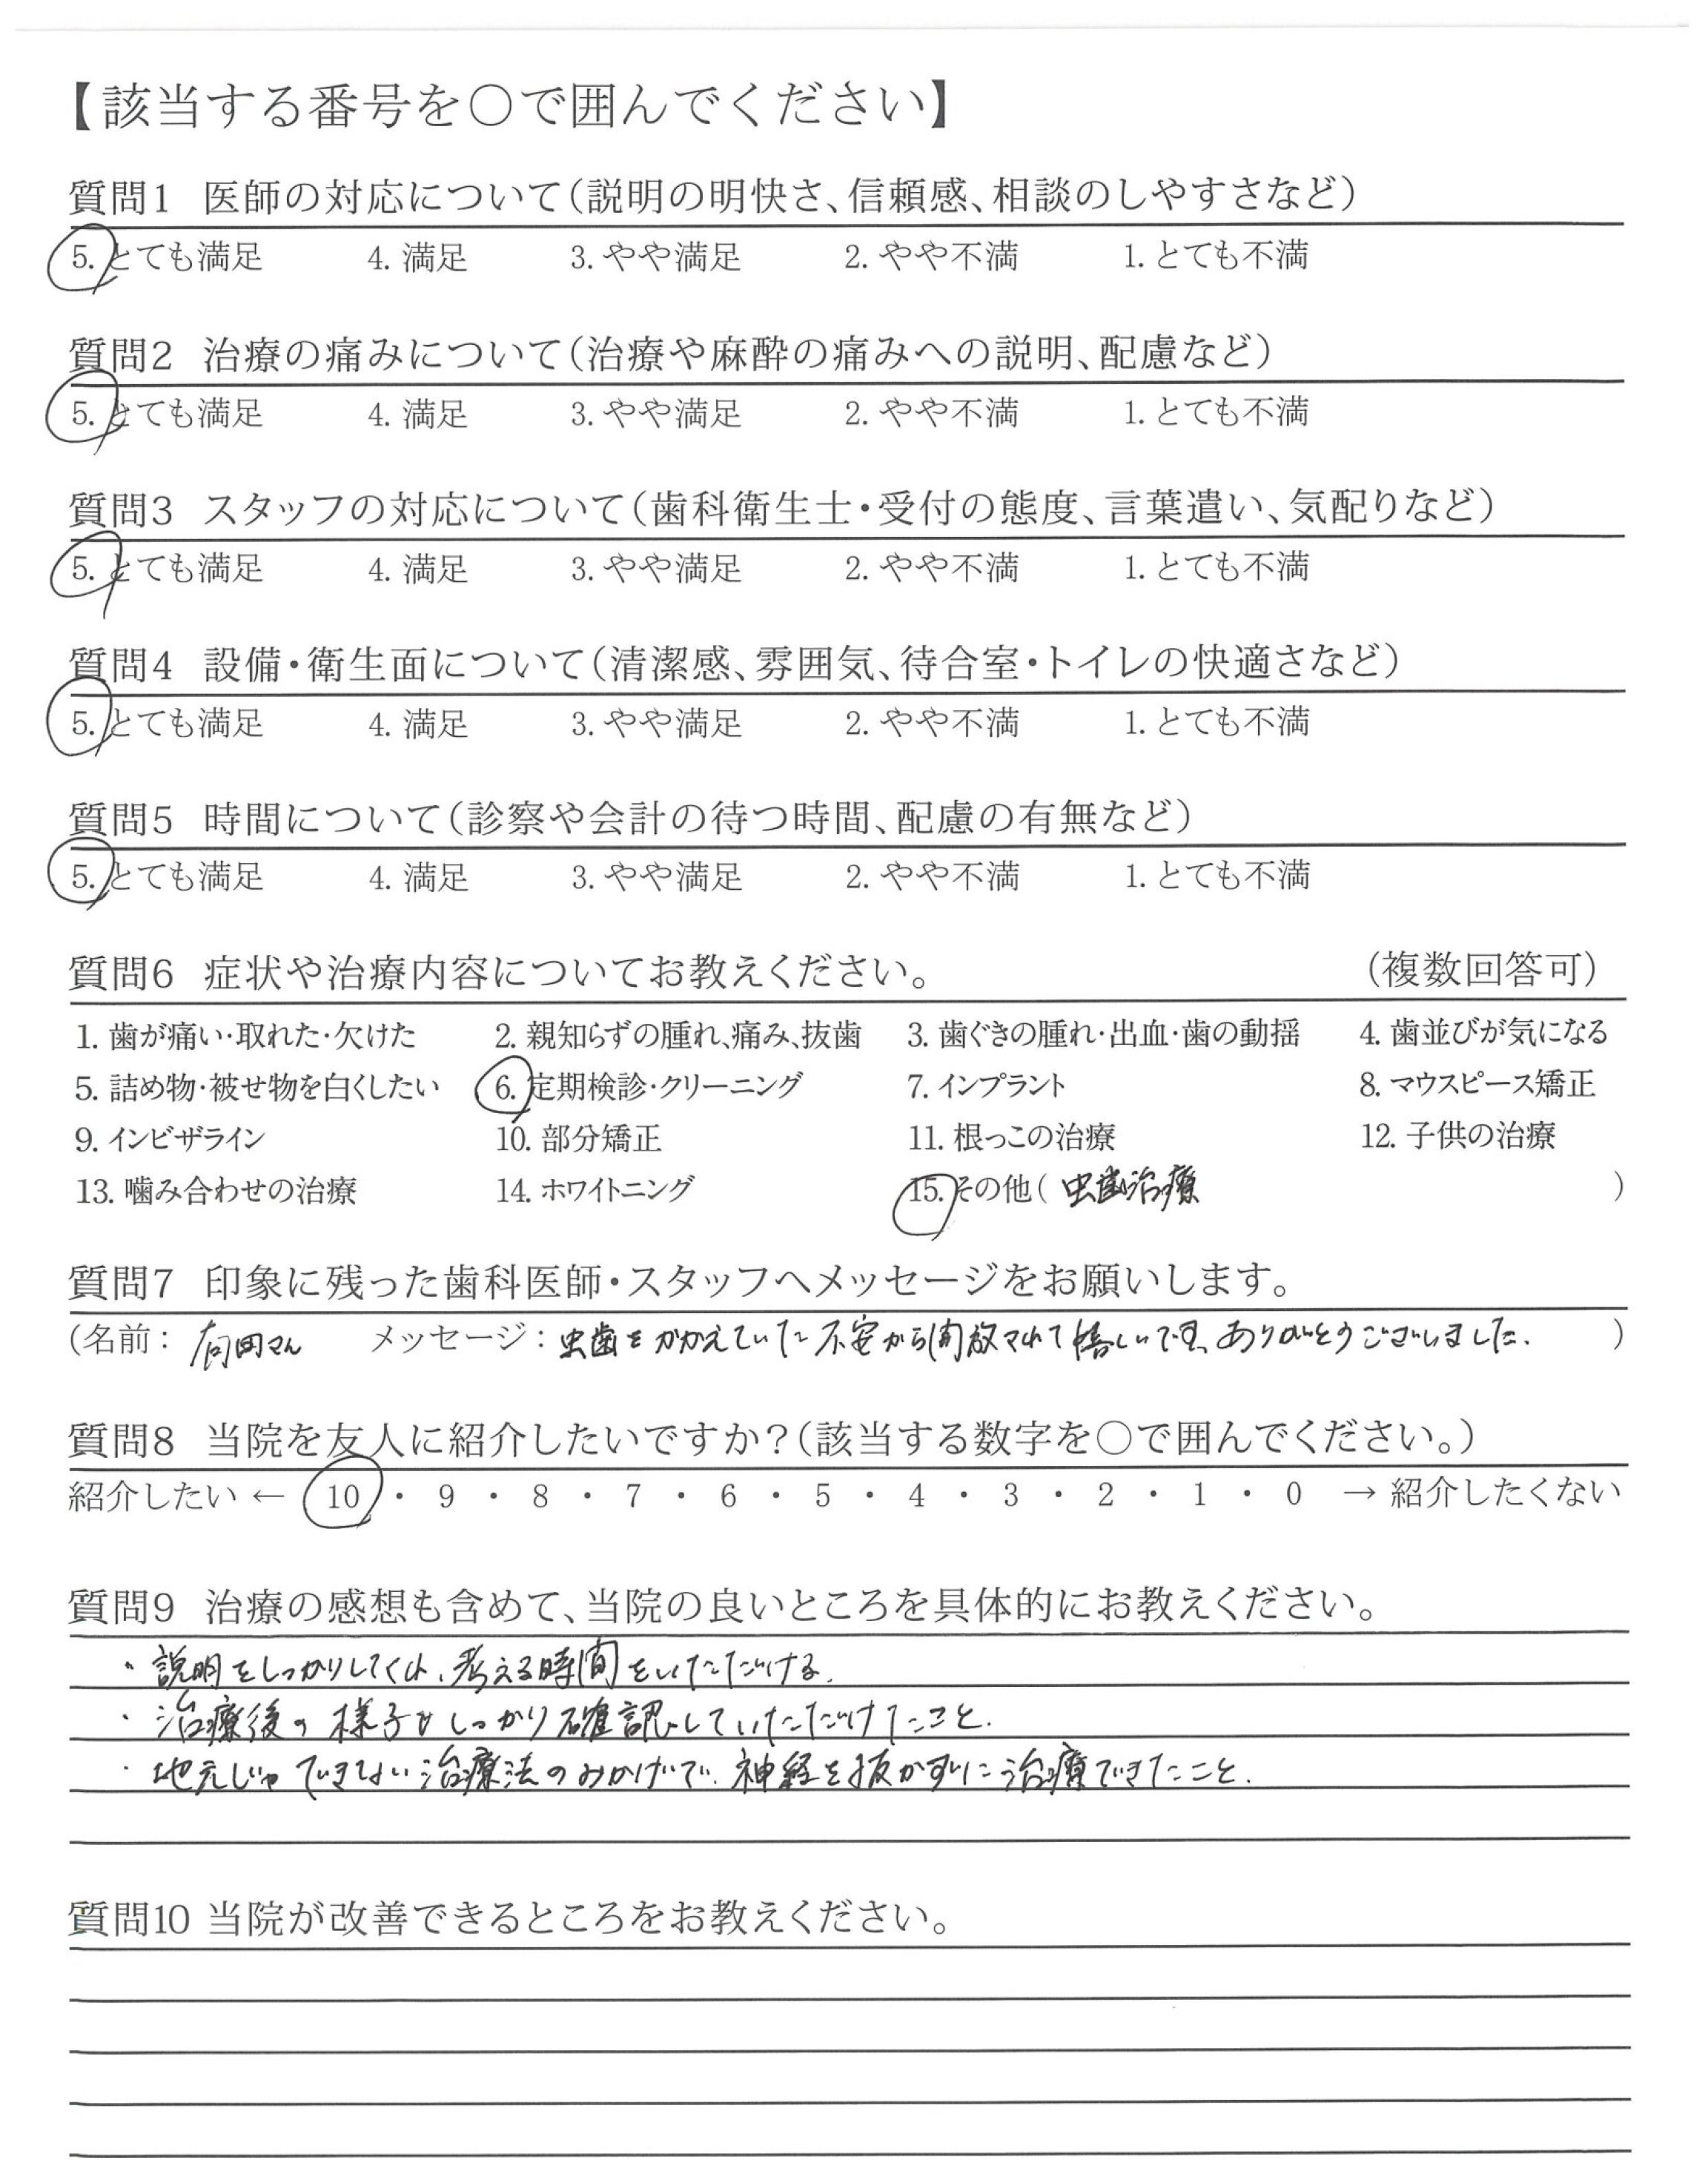 【該当する番号を○で囲んでください】
質問1 医師の対応について(説明の明快さ、信頼感、相談のしやすさなど)
5. とても満足 4. 満足 3. やや満足 2. やや不満 1. とても不満
質問2 治療の痛みについて(治療や麻酔の痛みへの説明、配慮など)
5. とても満足 4. 満足 3. やや満足 2. やや不満 1. とても不満
質問3 スタッフの対応について(歯科衛生士・受付の態度、言葉遣い、気配りなど)
5. とても満足 4. 満足 3. やや満足 2. やや不満 1. とても不満
質問4 設備・衛生面について(清潔感、雰囲気、待合室・トイレの快適さなど)
5. とても満足 4. 満足 3. やや満足 2. やや不満 1. とても不満
質問5 時間について(診察や会計の待つ時間、配慮の有無など)
5. とても満足 4. 満足 3. やや満足 2. やや不満 1. とても不満
質問6 症状や治療内容についてお教えください。 (複数回答可)
1. 歯が痛い・取れた・欠けた 2. 親知らずの腫れ、痛み、抜歯 3. 歯ぐきの腫れ・出血・歯の動揺 4. 歯並びが気になる
5. 詰め物・被せ物を白くしたい 6. 定期検診・クリーニング 7. インプラント 8. マウスピース矯正
9. インビザライン 10. 部分矯正 11. 根っこの治療 12. 子供の治療
13. 噛み合わせの治療 14. ホワイトニング 15. その他( 虫歯治療 )
質問7 印象に残った歯科医師・スタッフへメッセージをお願いします。
(名前: 向田さん メッセージ: 虫歯をかかえていた不安から開放されて嬉しいです、ありがとうございました. )
質問8 当院を友人に紹介したいですか?(該当する数字を○で囲んでください。)
紹介したい ← 10 ・ 9 ・ 8 ・ 7 ・ 6 ・ 5 ・ 4 ・ 3 ・ 2 ・ 1 ・ 0 → 紹介したくない
質問9 治療の感想も含めて、当院の良いところを具体的にお教えください。
・説明をしっかりしてくれ、考える時間をいただける.
・治療後の様子もしっかり確認していただけたこと.
・地元じゃできない治療法のおかげで、神経を抜かずに治療できたこと.
質問10 当院が改善できるところをお教えください。